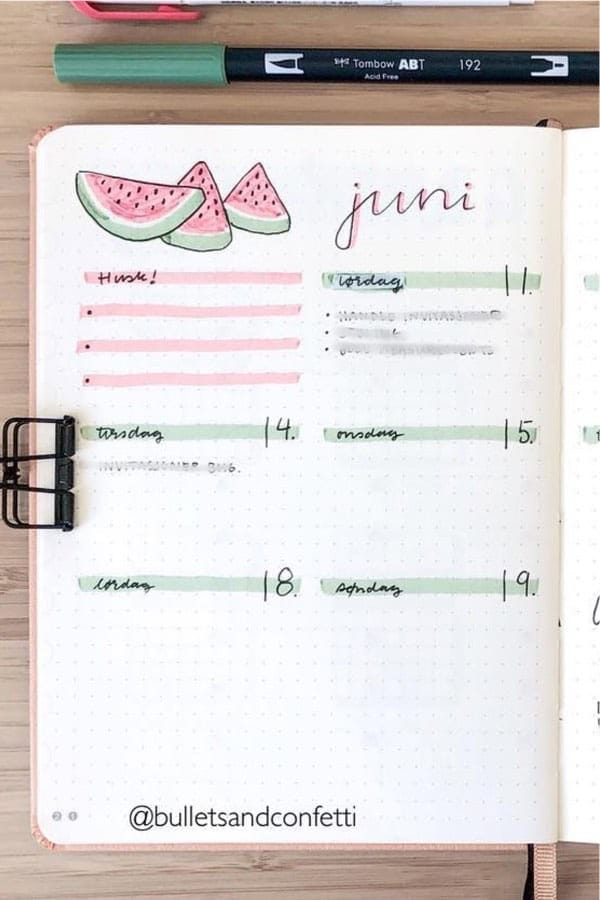 Tombow ABT
192
Acid Free
juni
Husk!
lørdag 11.
tirsdag 14.
onsdag 15.
lørdag 18.
søndag 19.
21
@bulletsandconfetti